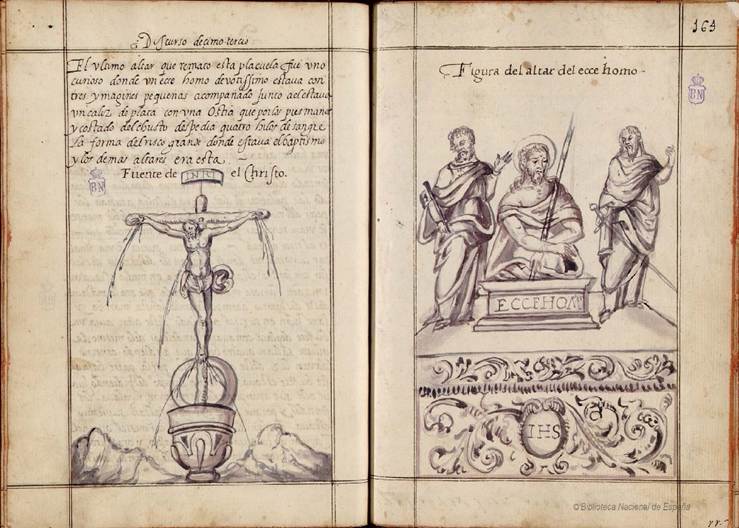 Discurso decimo tercio
El ultimo altar que remato esta plaçuela fue uno
curioso donde un ecce homo devotissimo estava con
tres ymagines pequenas acompañado junto ael estava
un caliz de plata con una Ostia que por los pies manos
y costado del christo despedia quatro hilos de sangre
la forma del risco grande donde estava el baptismo
y los demas altares era esta
Fuente de el Christo.
INRI
164
Figura del altar del ecce homo
BN
BN
ECCEHOM
IHS
©Biblioteca Nacional de España